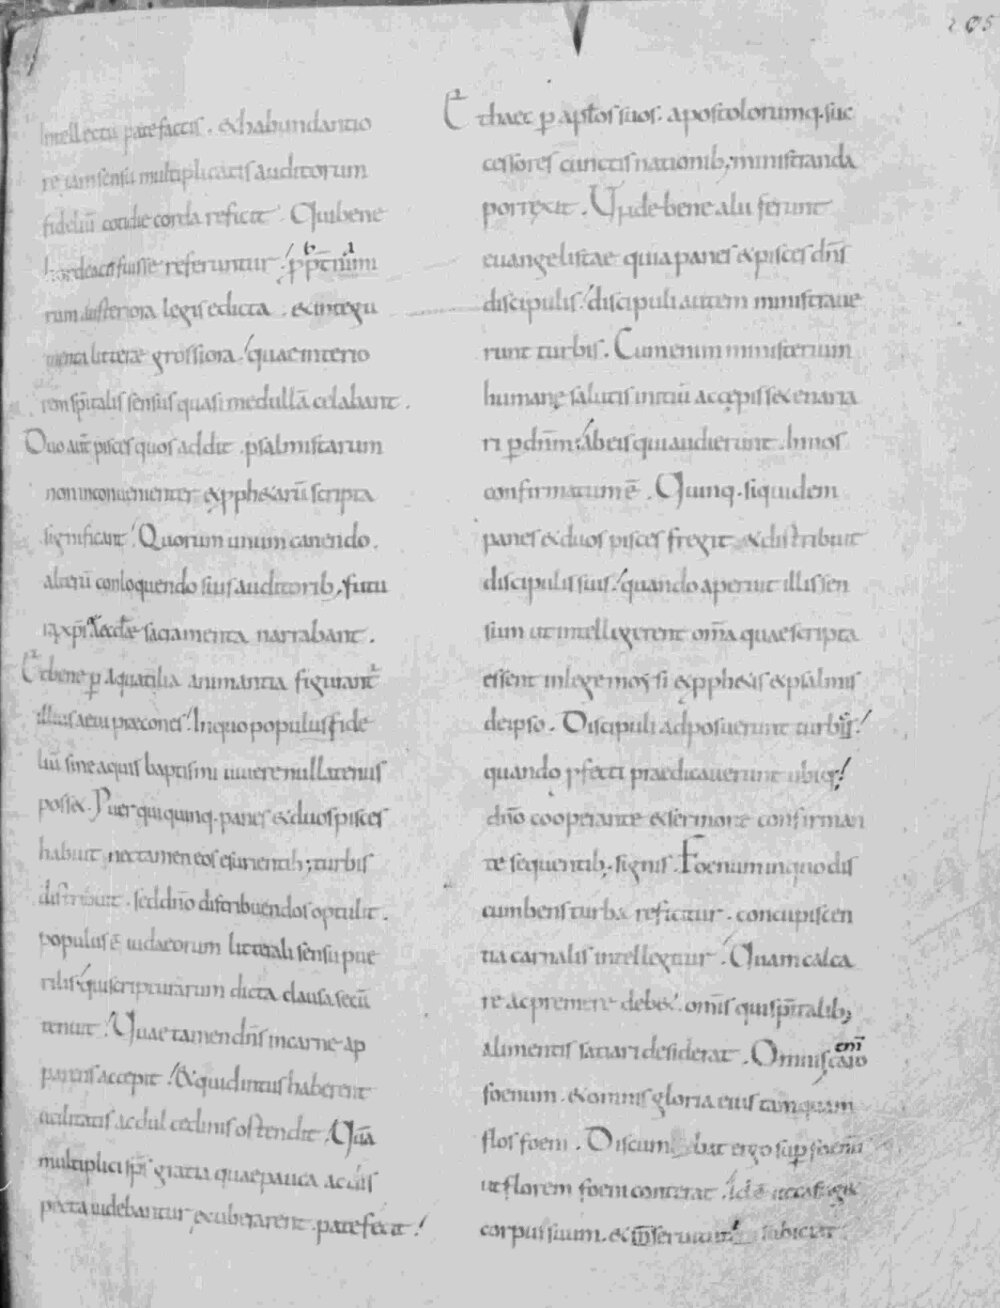 205
Intellectu patefactis . & habundantio
re iam sensu multiplicatis auditorum
fideliū cotidie corda reficit . Qui bene
hordeacei fuisse referuntur ; ꝑp̄t nimi
rum austeriora legis edicta . & integu
menta litterę grossiora . quae interio
rem sp̄italis sensus quasi medullā celabant .
Duo aūt pisces quos addit . psalmistarum
non inconuenienter & ꝓphetarū scripta
significant . Quorum unum canendo .
alterū conloquendo suis auditorib; futu
ra xp̄i & ecclae sacramenta narrabant .
Et bene ꝑ aquatilia animantia figurant̄
illius aeui praecones . In quo populus fide
liū sine aquis baptismi uiuere nullatenus
poss& . Puer qui quinq. panes & duos pisces
habuit nec tamen eos esurientib; turbis
distribuit . sed dn̄o distribuendos optulit .
populus ē iudaeorum litterali sensu pue
rilis . qui scripturarum dicta clausa secū
tenuit . Quae tamen dn̄s in carne ap
parens accepit . & quid intus haberent
utilitatis ac dulcedinis ostendit . Quā
multiplici sp̄s gratia quae pauca ac dis
pecta uidebantur exuberarent . patefecit .
Et haec ꝑ apłos suos . apostolorumq. suc
cessores cunctis nationib; ministranda
porrexit . Unde bene alii ferunt
euangelistae quia panes & pisces dn̄s
discipulis . discipuli autem ministraue
runt turbis . Cum enim misterium
humanę salutis initiū accępisset enarra
ri ꝑ dn̄m . ab eis qui audierunt . In nos
confirmatum ē . Quinq. siquidem
panes & duos pisces fregit & distribuit
discipulis suis . quando aperuit illis sen
sum ut intellegerent om̄a quae scripta
essent in lege mosi & ꝓphetis & psalmis
de ipso . Discipuli adposuerunt turbis .
quando ꝓfecti praedicauerunt ubiq;
dn̄o cooperante & sermone confirman
te sequentib; signis . Foenum in quo dis
cumbens turba reficitur . concupiscen
tia carnalis intellegitur . Quam calca
re ac premere deb& . om̄is qui sp̄italib;
alimentis satiari desiderat . Omnis enī caro
foenum . & omnis gloria eius tamquam
flos foeni . Discumbat ergo sup foenū
ut florem foeni conterat . id ē ut castig&
corpus suum . & in seruitutē subiciat